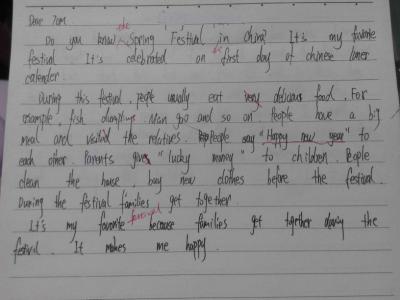 Dear Tom
Do you know the Spring Festival in China? It's my favorite
festival It's celebrated on the first day of chinese luner
calender.
During this festival, people usually eat very delicious food. For
example, fish dumplings, Nian gao and so on People have a big
meal and visited the relatives. People say "Happy new year" to
each other. Parents give "lucky money" to children. People
clean the house, buy new clothes before the festival.
During the festival families get together.
It's my favorite festival because families get together during the
festival. It makes me happy.